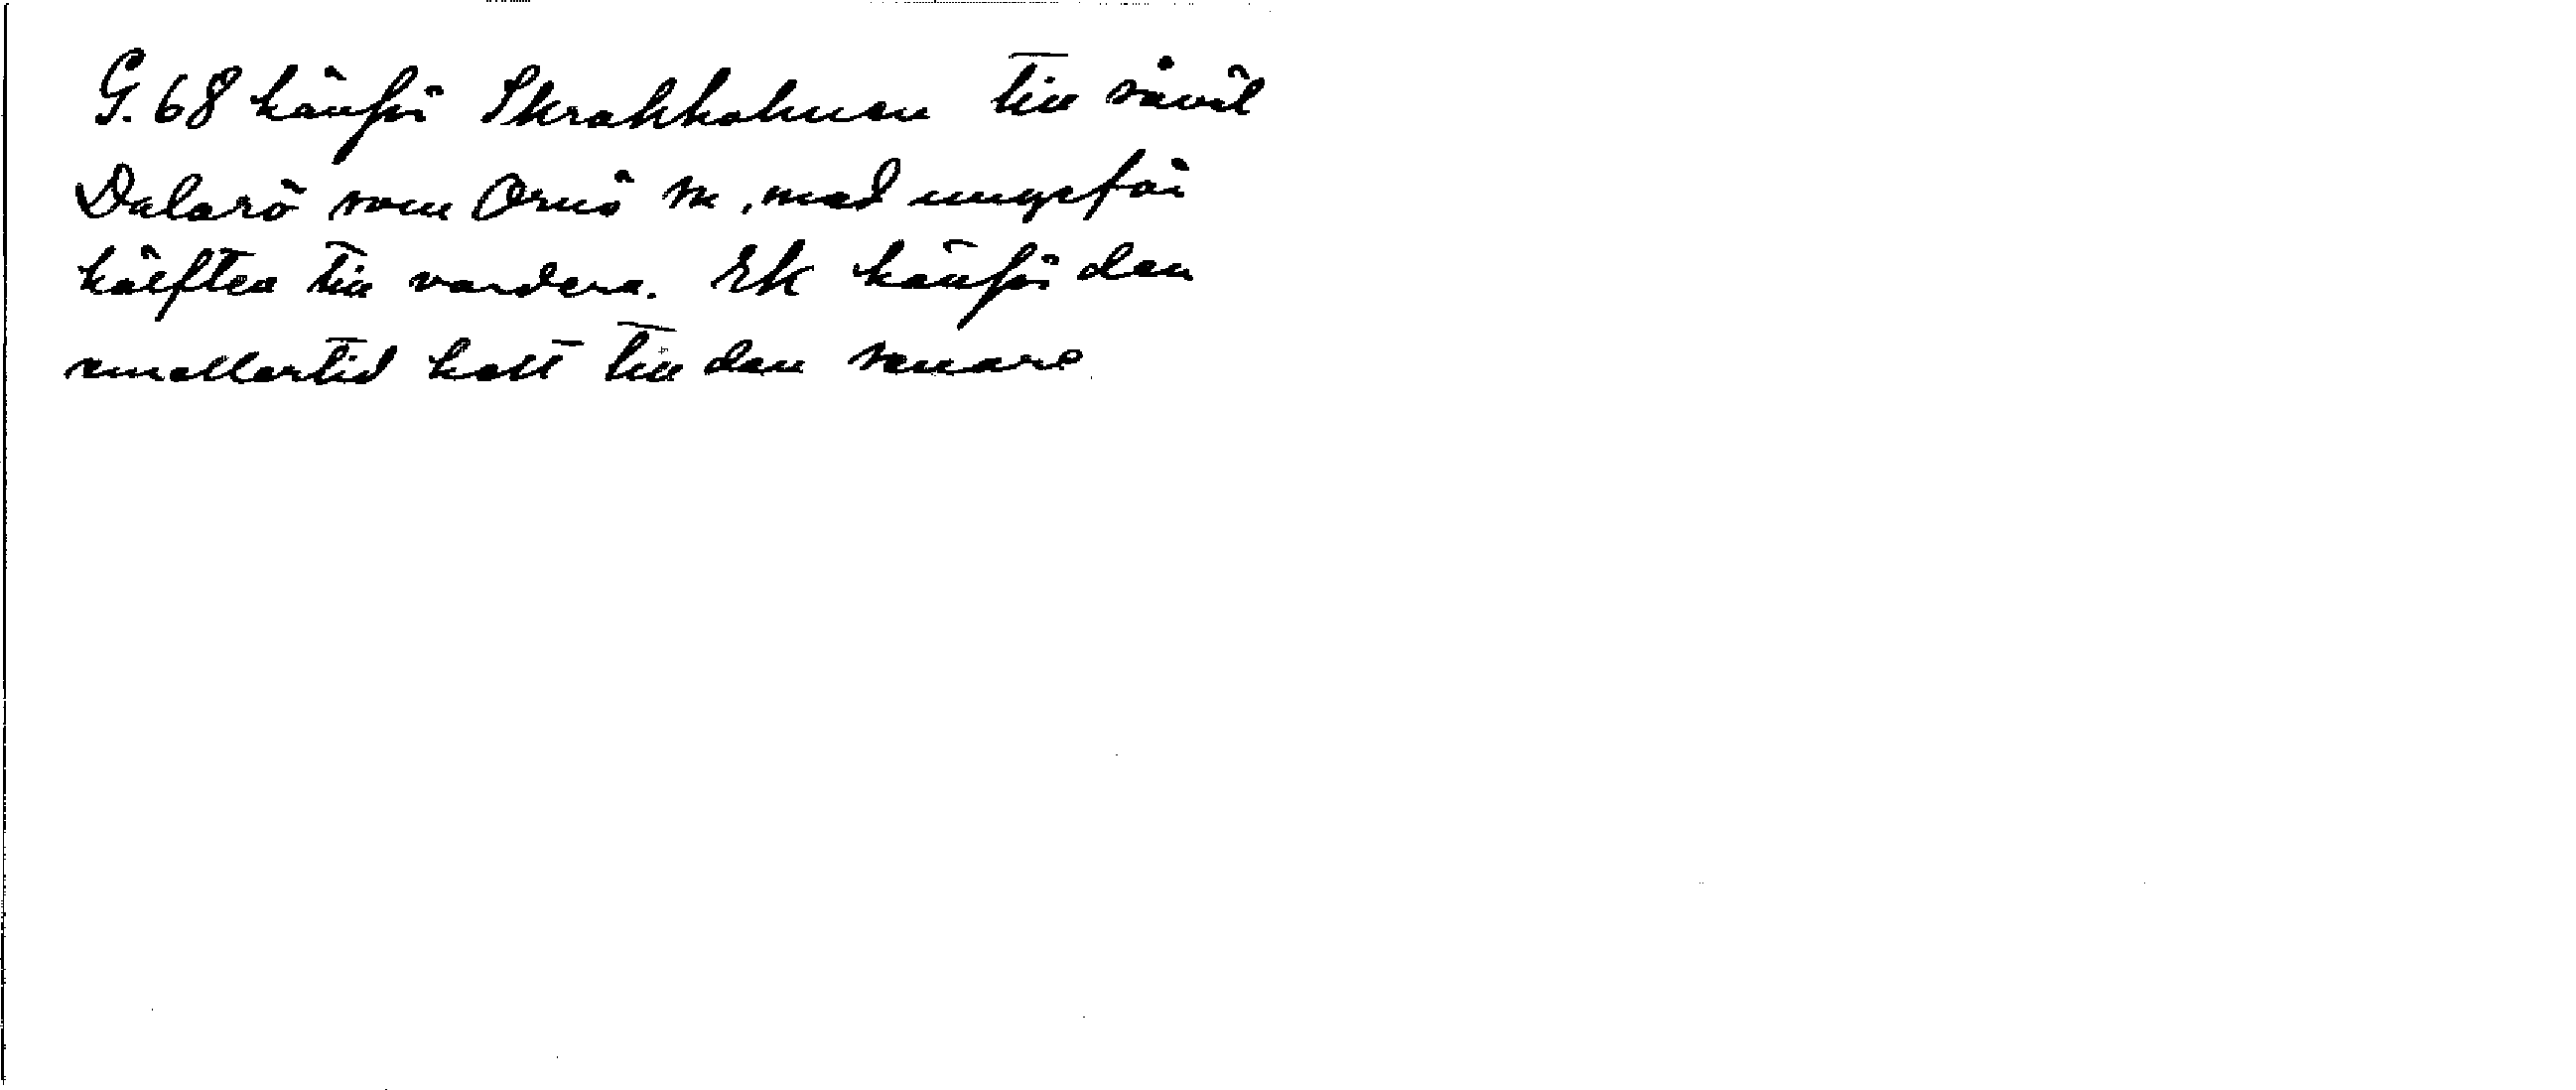 G. 68 hänför Skrakholmen till såväl
Dalarö som Ornö sn, med ungefär
hälften till vardera. EK hänför den
emellertid helt till den senare